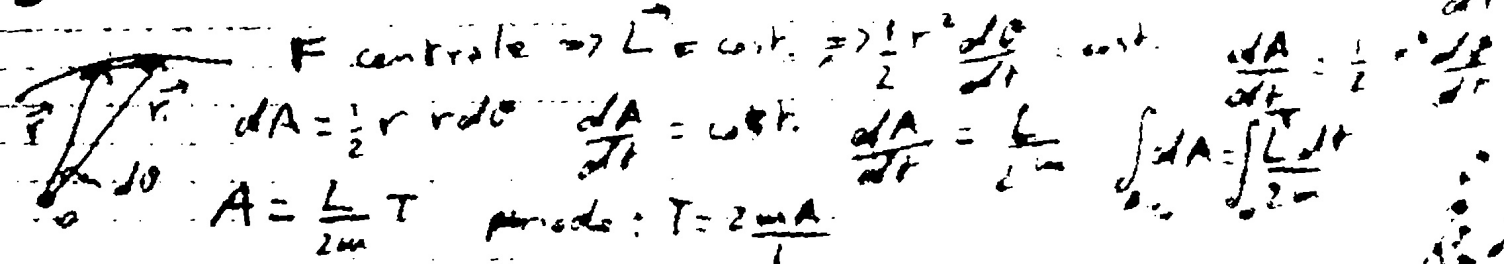 F centrale => L⃗ = cost. => 1/2 r² dθ/dt = cost. dA/dt = 1/2 r² dθ/dt
r⃗ r⃗ dA = 1/2 r rdθ dA/dt = cost. dA/dt = L/2m ∫dA = ∫₀ᵀ L dt/2m
dθ
o A = L/2m T periodo: T = 2mA/L